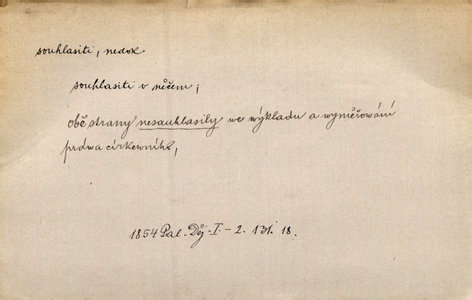 souhlasiti, nedok
souhlasiti v něčem;
obě strany nesauhlasily we wýkladu a wyměřowání
práwa církewního,
1854 Pal. Děj. I.-2. 131. 18.